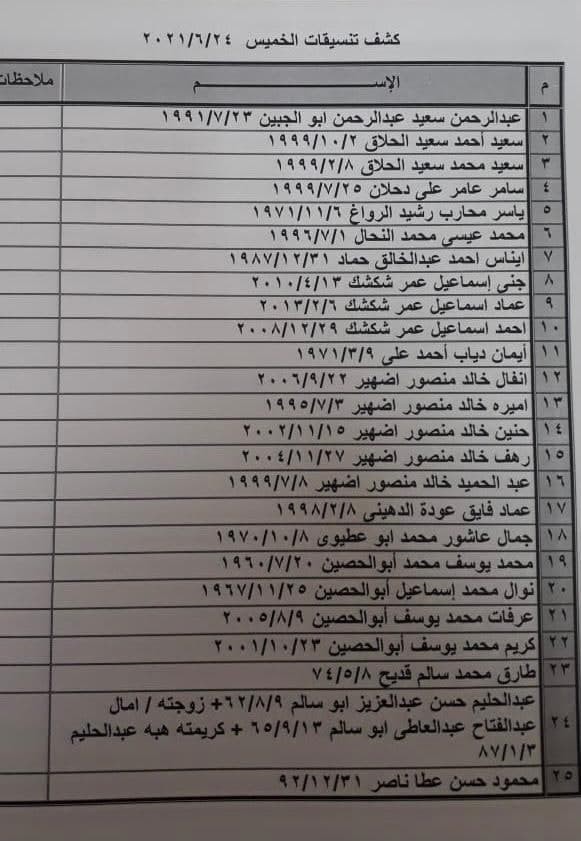 كشف تنسيقات الخميس ٢٠٢١/٦/٢٤
م الإســــــــم ملاحظات
١ عبدالرحمن سعيد عبدالرحمن ابو الجبين ١٩٩١/٧/٢٣
٢ سعيد أحمد سعيد الحلاق ١٩٩٩/١٠/٢
٣ سعيد محمد سعيد الحلاق ١٩٩٩/٢/٨
٤ سامر عامر على دحلان ١٩٩٩/٧/٢٥
٥ ياسر محارب رشيد الرواغ ١٩٧١/١١/٦
٦ محمد عيسى محمد النحال ١٩٩٦/٧/١
٧ ايناس احمد عبدالخالق حماد ١٩٨٧/١٢/٣١
٨ جنى إسماعيل عمر شكشك ٢٠١٠/٤/١٣
٩ عماد اسماعيل عمر شكشك ٢٠١٣/٢/٦
١٠ احمد اسماعيل عمر شكشك ٢٠٠٨/١٢/٢٩
١١ أيمان دياب أحمد على ١٩٧١/٣/٩
١٢ انفال خالد منصور اضهير ٢٠٠٦/٩/٢٢
١٣ اميره خالد منصور اضهير ١٩٩٥/٧/٣
١٤ حنين خالد منصور اضهير ٢٠٠٢/١١/١٥
١٥ رهف خالد منصور اضهير ٢٠٠٤/١١/٢٧
١٦ عبد الحميد خالد منصور اضهير ١٩٩٩/٧/٨
١٧ عماد فايق عودة الدهينى ١٩٩٨/٢/٨
١٨ جمال عاشور محمد ابو عطيوى ١٩٧٠/١٠/٨
١٩ محمد يوسف محمد أبوالحصين ١٩٦٠/٧/٢٠
٢٠ نوال محمد إسماعيل أبوالحصين ١٩٦٧/١١/٢٥
٢١ عرفات محمد يوسف أبوالحصين ٢٠٠٥/٨/٩
٢٢ كريم محمد يوسف أبوالحصين ٢٠٠١/١٠/٢٣
٢٣ طارق محمد سالم قديح ٧٤/٥/٨
٢٤ عبدالحليم حسن عبدالعزيز ابو سالم ٦٢/٨/٩+ زوجته / امال
عبدالفتاح عبدالعاطى ابو سالم ٦٥/٩/١٣ + كريمته هبه عبدالحليم
٨٧/١/٣
٢٥ محمود حسن عطا ناصر ٩٢/١٢/٣١